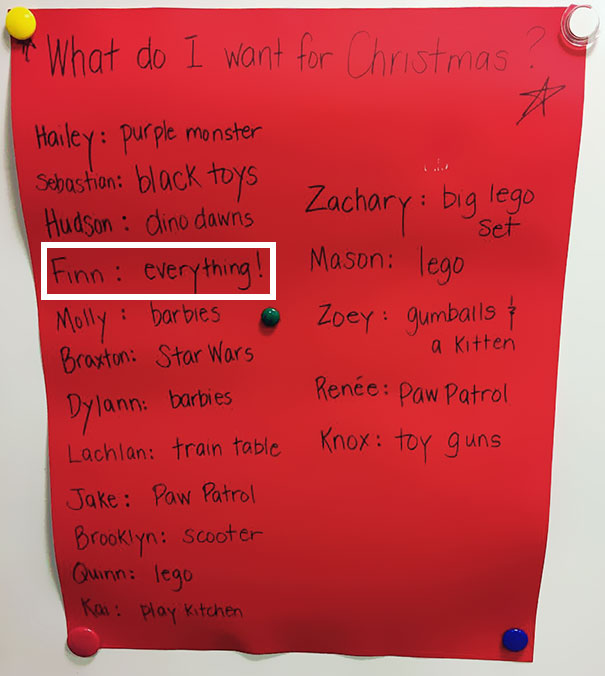 What do I want for Christmas?
Hailey: purple monster
Sebastian: black toys
Hudson: dino dawns
Finn: everything!
Molly: barbies
Braxton: Star Wars
Dylann: barbies
Lachlan: train table
Jake: Paw Patrol
Brooklyn: scooter
Quinn: lego
Kai: play kitchen
Zachary: big lego
set
Mason: lego
Zoey: gumballs &
a kitten
Renée: Paw Patrol
Knox: toy guns